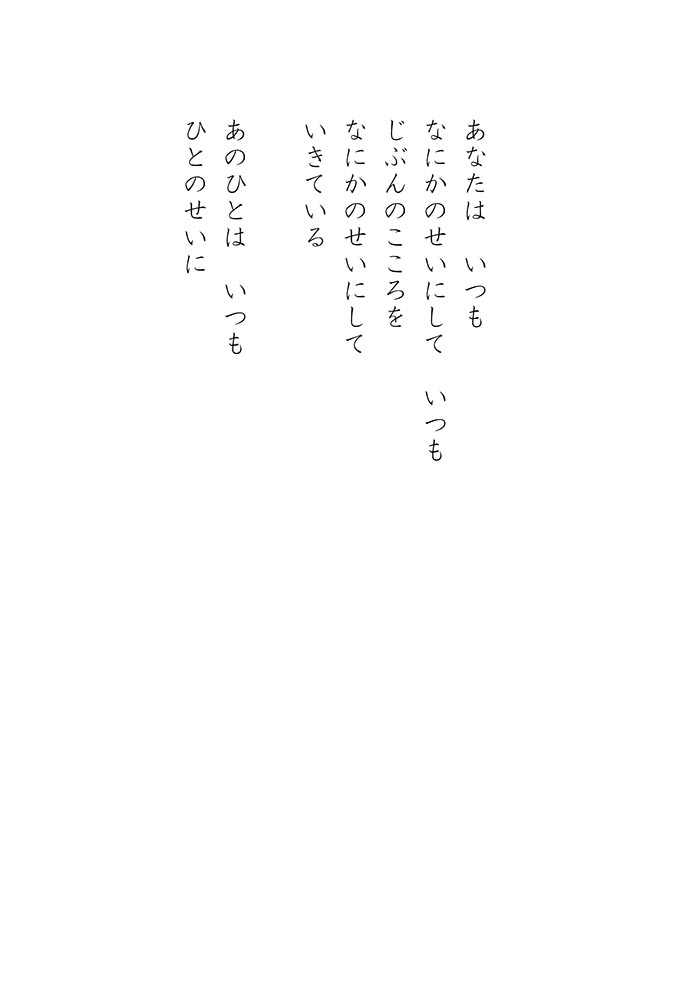 あなたは　いつも
なにかのせいにして　いつも
じぶんのこころを
なにかのせいにして
いきている

あのひとは　いつも
ひとのせいに